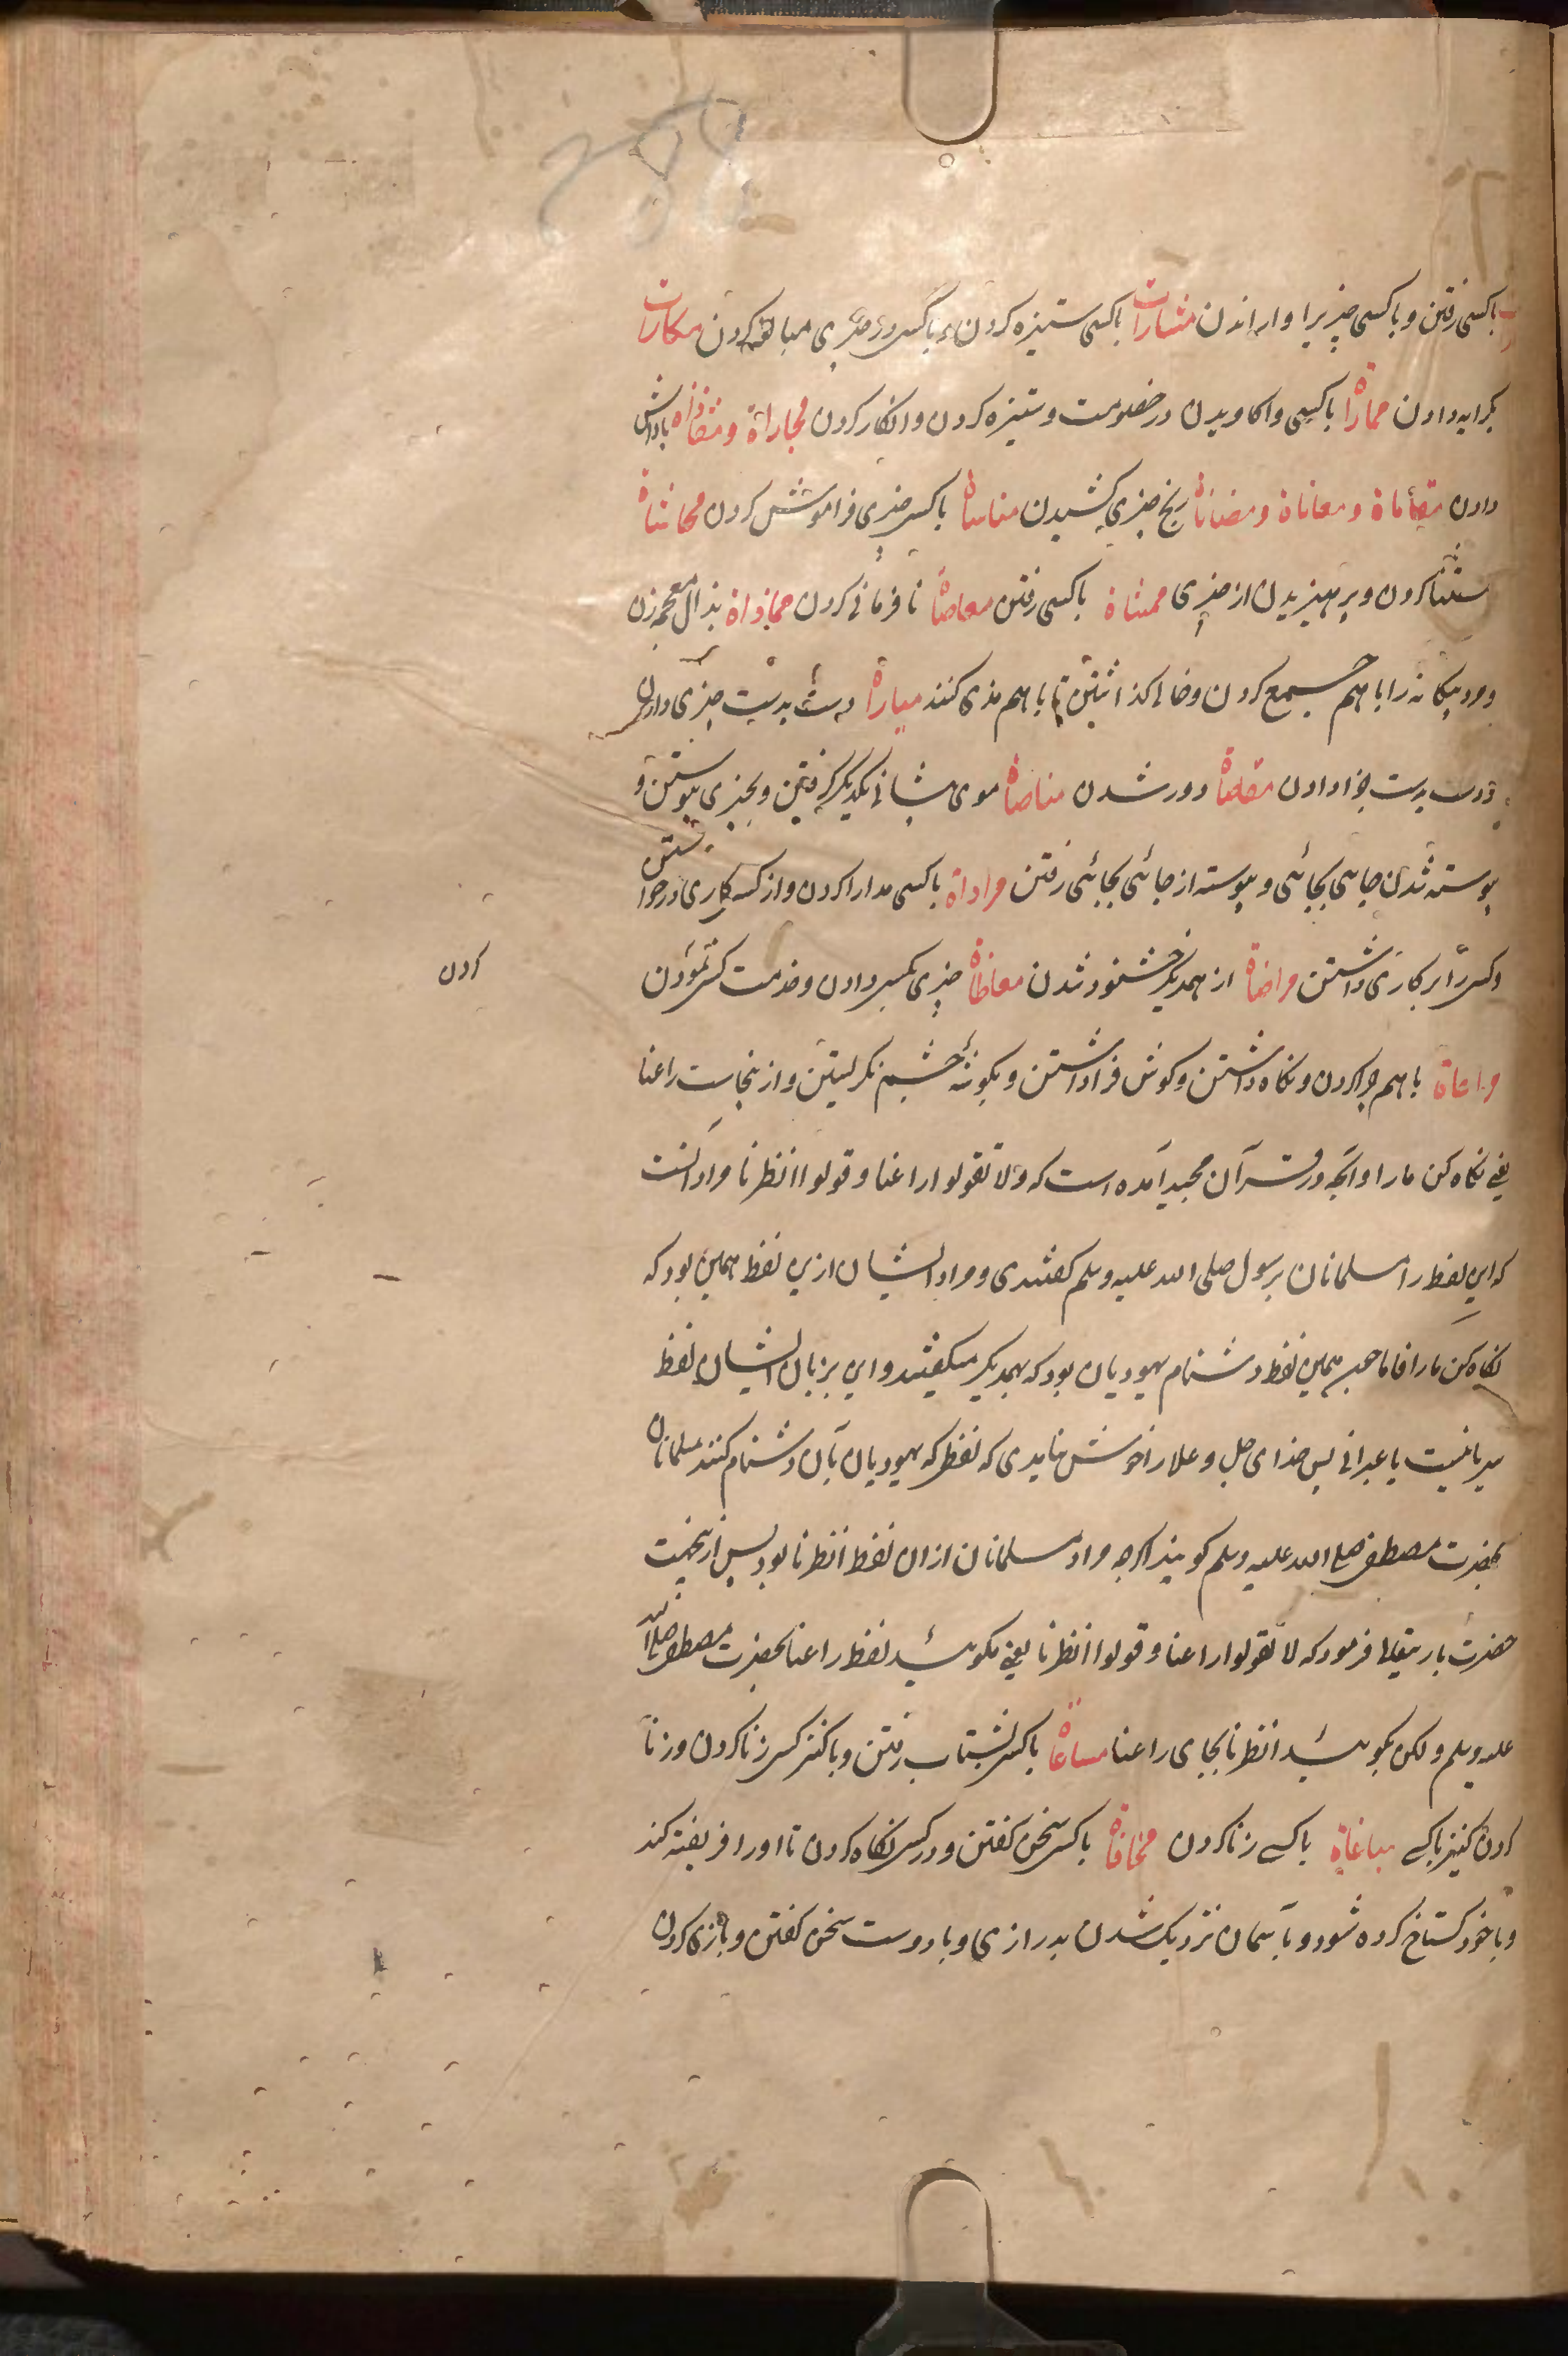 باکسی رفتن و باکسی چیزیرا وار اندن مشارات باکسی ستیزه کردن و باکسی در چیزی مبالغه کردن مکارات
بکرایه دادن مماراة باکسی واکاویدن در خصومت و ستیزه کردن و انکار کردن مجازاة و پاداش
دادن مقاماة و معاناة و مضاناة رنج چیزی کشیدن مناساة باکسی چیزی فراموش کردن محاشاة
استثنا کردن و پرهیزیدن از چیزی مماشاة باکسی رفتن معاصاة نافرمانی کردن مماذاة بذال معجمه زن
و مرد بیکانه را باهم جمع کردن و خالی کذاشتن تا باهم مذی کنند مباراة دست بدست چیزی دادن
دست بدست فرا دادن مقاصاة دور شدن مناصاة موی پیشانی یکدیکر کرفتن و بچیزی پیوستن و
پیوسته شدن جایی بجائی و پیوسته از جائی بجائی رفتن مراداة باکسی مدارا کردن و از کسی کاری درخواستن
و کسی را بر کاری داشتن مراضاة از همدیکر خشنود شدن معاطاة چیزی بکسی دادن و خدمت کسی نمودن
کردن
مراعاة باهم چرا کردن و نکاه داشتن و کوش فرا داشتن و بکوشه چشم نکریستن و از ینجاست راعنا
یعنی نکاه کن مارا و آنچه در قرآن مجید آمده است که و لا تقولوا راعنا و قولوا انظرنا مراد آنست
که این لفظ را مسلمانان برسول صلی الله علیه وسلم کفتندی و مراد ایشان ازین لفظ همین بود که
نکاه کن مارا فاما همین لفظ دشنام یهودیان بود که بهمدیکر میکفتند و این بزبان ایشان لفظ
سریانیست یا عبرانی پس خدای جل و علا را خوش نیامدی که لفظی که یهودیان بآن دشنام کنند مسلمانان
بحضرت مصطفی صلی الله علیه وسلم کویند اکرچه مراد مسلمانان ازان لفظ انظرنا بود پس ازینجهت
حضرت باریتعالی فرمود که لا تقولوا راعنا و قولوا انظرنا یعنی مکوئید لفظ راعنا بحضرت مصطفی صلی الله
علیه وسلم ولکن بکوئید انظرنا بجای راعنا مساعاة باکسی بشتاب رفتن و با کنیز کسی زنا کردن و زنا
کردن کنیز باکسی مباغاة باکسی زنا کردن مخافاة باکسی سخن کفتن و در کسی نکاه کردن تا اورا فریفته کند
و با خود کستاخ کرده شود و بآسمان نزدیک شدن بدرازی و با دوست سخن کفتن و بازی کردن